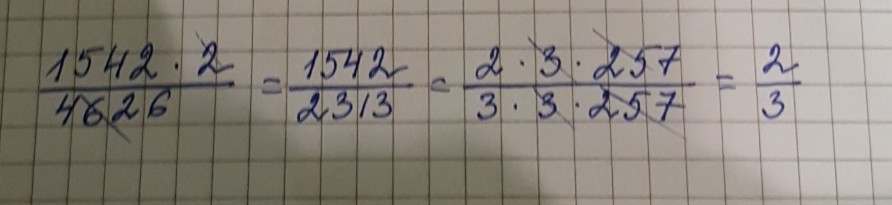 1542 · 2 / 4626 = 1542 / 2313 = 2 · 3 · 257 / 3 · 3 · 257 = 2 / 3